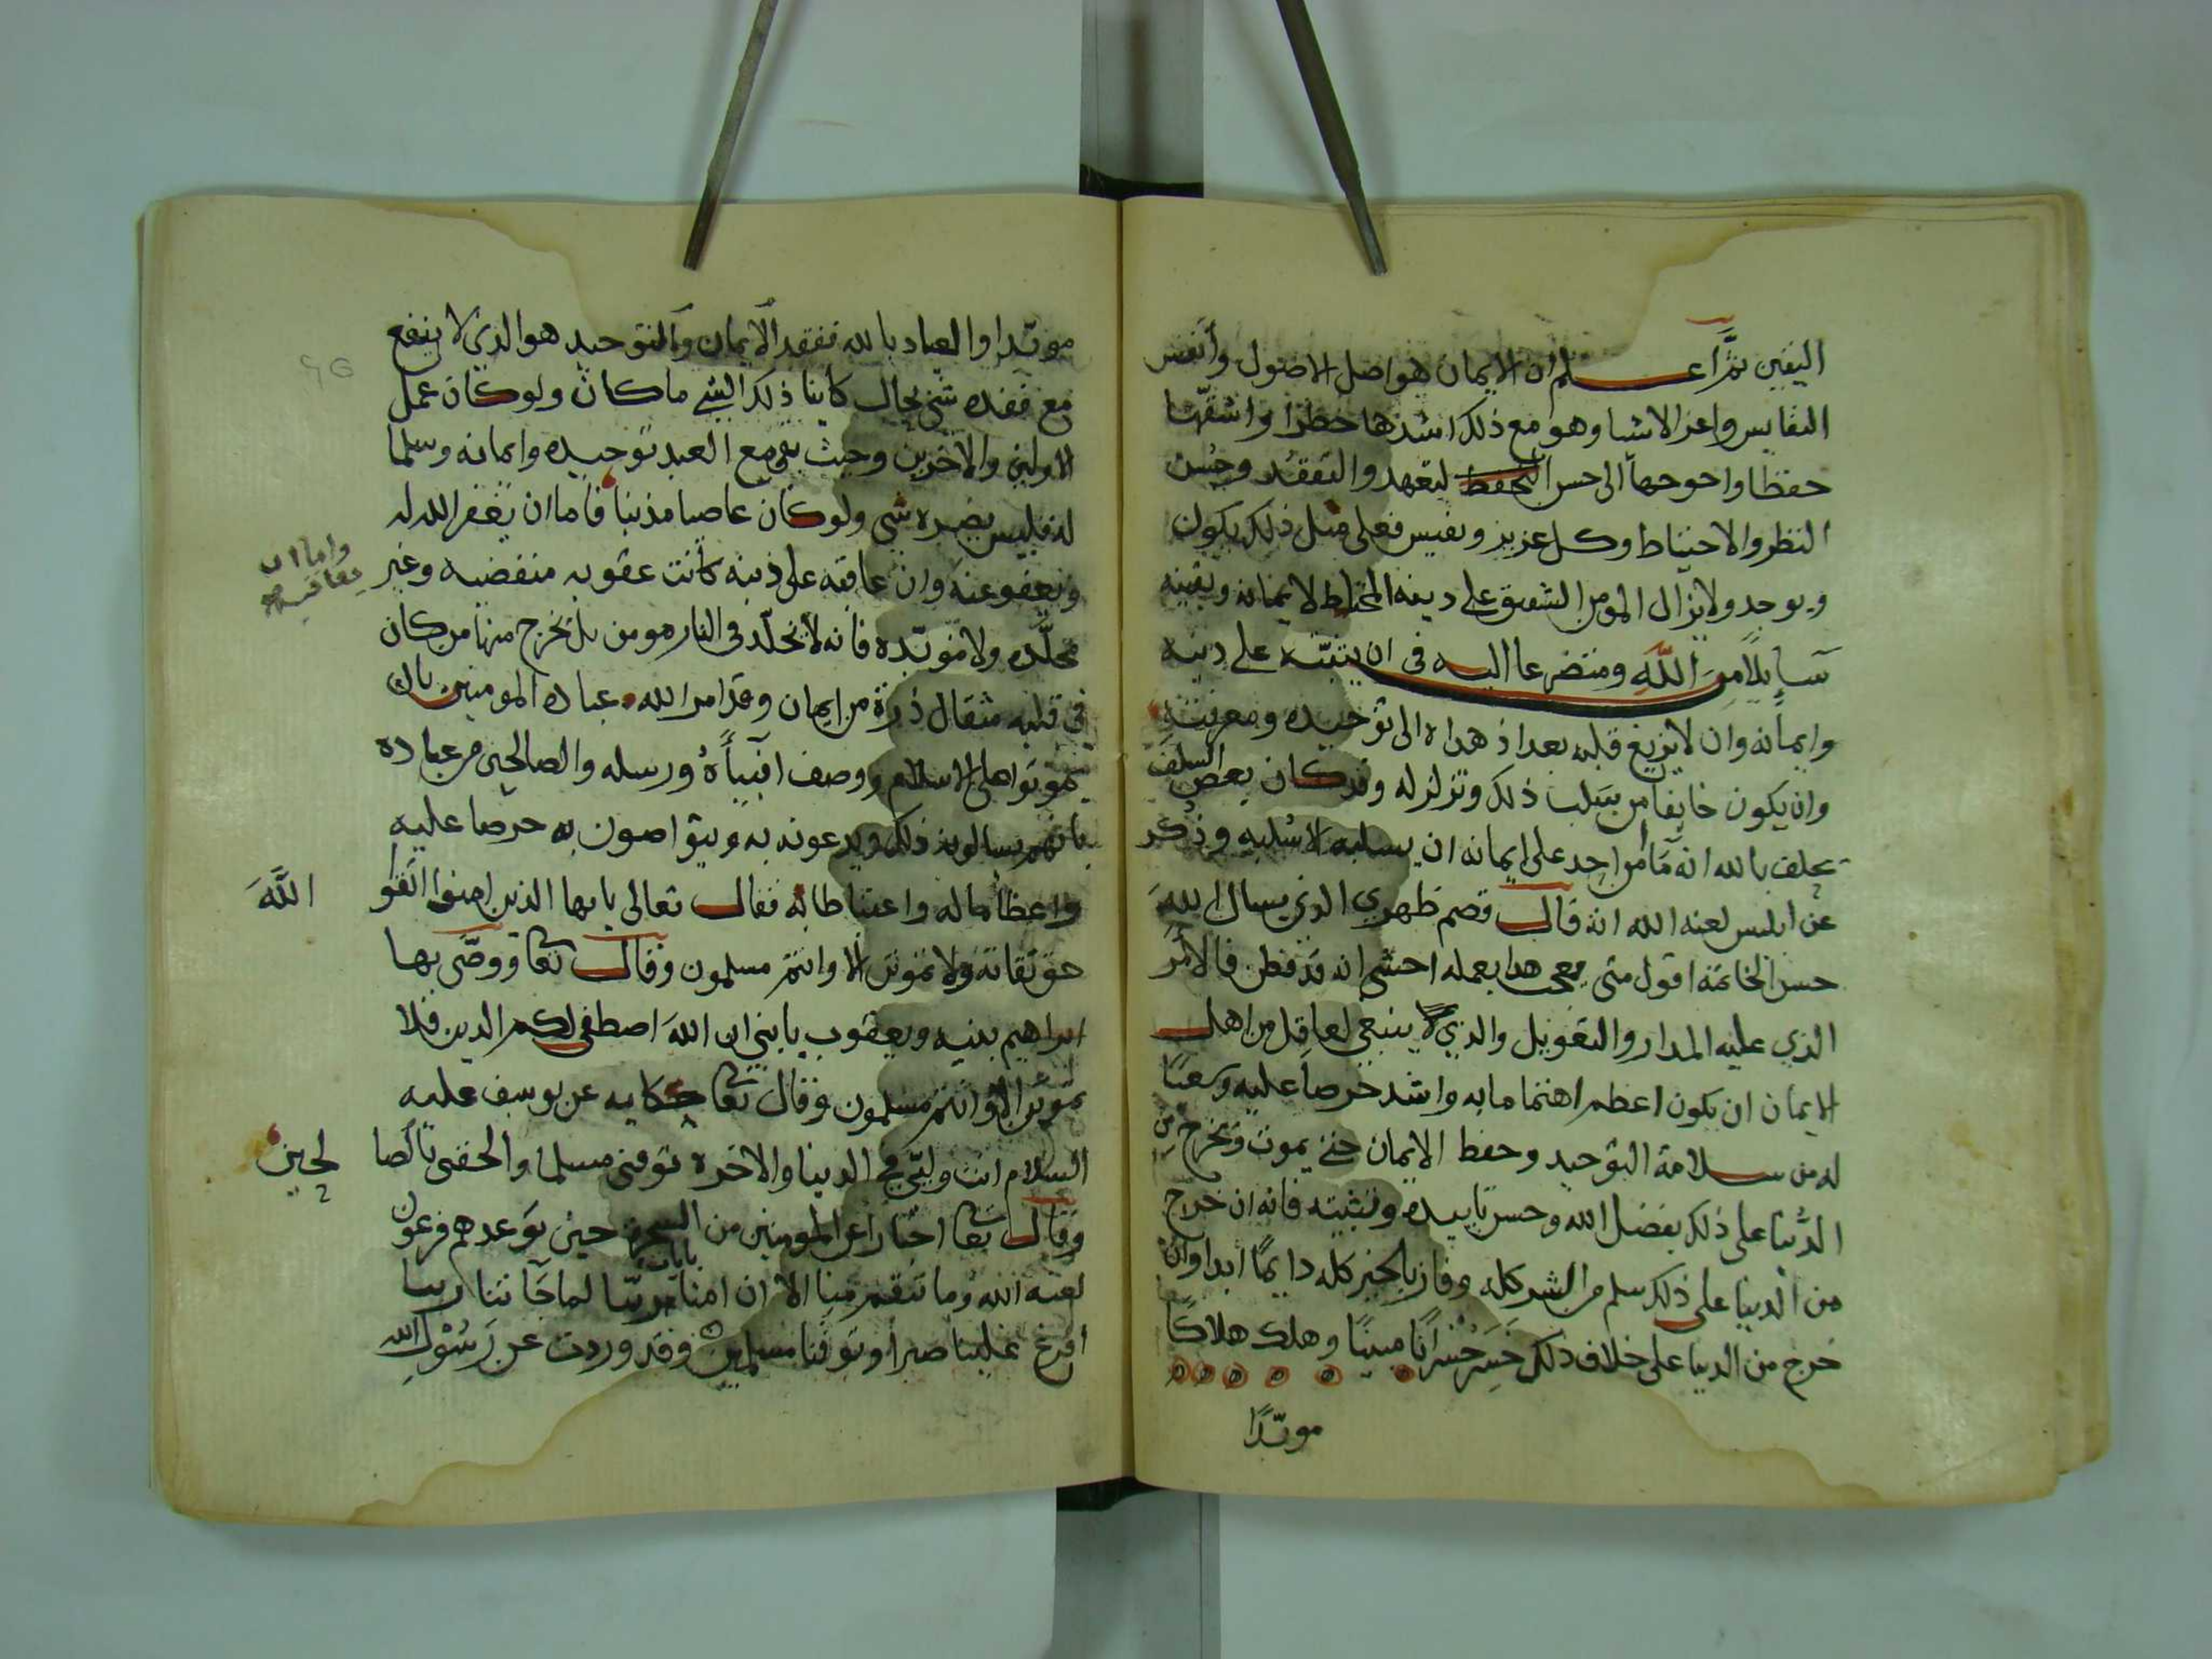 اليقين ثمَّ اعلم ان الايمان هو اصل الاصول وأنفس
النفايس واعز الاشيا وهو مع ذلك اشدها خطرا واشقّها
حفظا واحوجها الى حسن التحفظ لتعهد والتفقد وحُسن
النظر والاحتياط وكل عزيز ونفيس فعلى مثل ذلك يكون
ويوجد ولا يزال المومن الشفيق على دينه المحتاط لايمانه ويقينه
سايلاً من اللَّه ومتضرعا اليه فى ان يثبّته على دينه
وايمانه وان لا يزيغ قلبه بعد اذ هداه الى توحيده ومعرفته
وان يكون خايفا من سلب ذلك وتزلزله وقد كان بعض السلف
يحلف بالله انه مَا أمن احد على ايمانه ان يسلبه الا سُلبه وذُكر
عن ابليس لعنه الله انه قال قصم ظهري الذي يسال الله
حسن الخاتمة اقول متى يعجب هدا بعمله اخشى انه قد فطن فالأمر
الذي عليه المدار والتعويل والذي لا ينبغى لعاقل من اهل
الايمان ان يكون اعظم اهتماما به واشد حرصا عليه وسعيًا
له من سلامة التوحيد وحفظ الايمان حتى يموت ويخرج من
الدُّنيا على ذلك بفضل الله وحسن تاييده وتثبيته فانه ان خرج
من الدنيا على ذلك سلم من الشر كله وفاز بالخير كله دايمًا ابدا وان
خرج من الدنيا على خلاف ذلك خَسِر خُسْرانًا مبينًا وهلك هلاكًا
موبّدًا
موبّدا والعياد بالله ففقد الايمان والتوحيد هو الذي لا ينفع
مع فقده شى بحال كاينا ذلك الشي ما كان ولو كان عمل
الاولين والاخرين وحيث بقي مع العبد توحيده وايمانه وسلما
له فليس يضره شي ولو كان عاصيا مذنبا فاما ان يغفر الله له
ويعفو عنه وان عاقبه على ذنبه كانت عقوبه منقضيه وغير
واما ان
يعاقبه
مخلّده ولا موبّده فانه لا يخلّد فى النار مومن بل يخرج منها من كان
فى قلبه مثقال ذرة من ايمان وقد امر الله عباده المومنين بان
يموتوا على الاسلام ووصف انبيأهُ ورسله والصالحين من عباده
بانهم يسالونه ذلك ويدعونه به ويتواصون به حرصا عليه
واعظاما له واغتباطا به فقال تعالى يايها الذين امنوا اتقوا
اللَّهَ
حق تقاته ولا تموتن الا وانتم مسلمون وقال تعا ووصَّى بها
ابراهيم بنيه ويعقوب يا بني ان اللهَ اصطفى لكم الدين فلا
تموتن الا وانتم مسلمون وقال تعا حكايه عن يوسف عليه
السلام انت وليّي في الدنيا والاخره توفنى مسلما والحقنى بالصا
لحين
وقال تعا اخبارا عن المومنين من السحرة حين توعدهم فرعون
لعنه الله وما تنقم منا الا ان امنا بايات ربّنا لما جَاتنا ربنا
أفرغ علينا صبرا وتوفنا مسلمين وقد وردت عن رَسُوْل الله